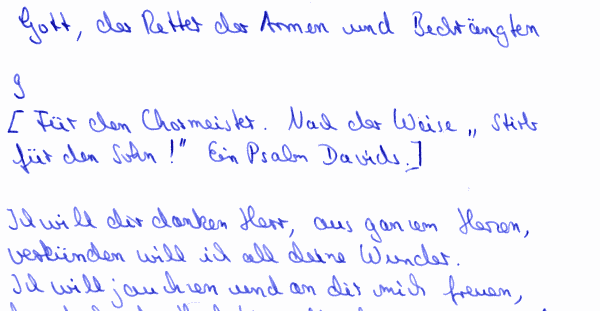 Gott, der Retter der Armen und Bedrängten
9
[Für den Chormeister. Nach der Weise „Stirb
für den Sohn!" Ein Psalm Davids.]
Ich will dir danken Herr, aus ganzem Herzen,
verkünden will ich all deine Wunder.
Ich will jauchzen und an dir mich freuen,